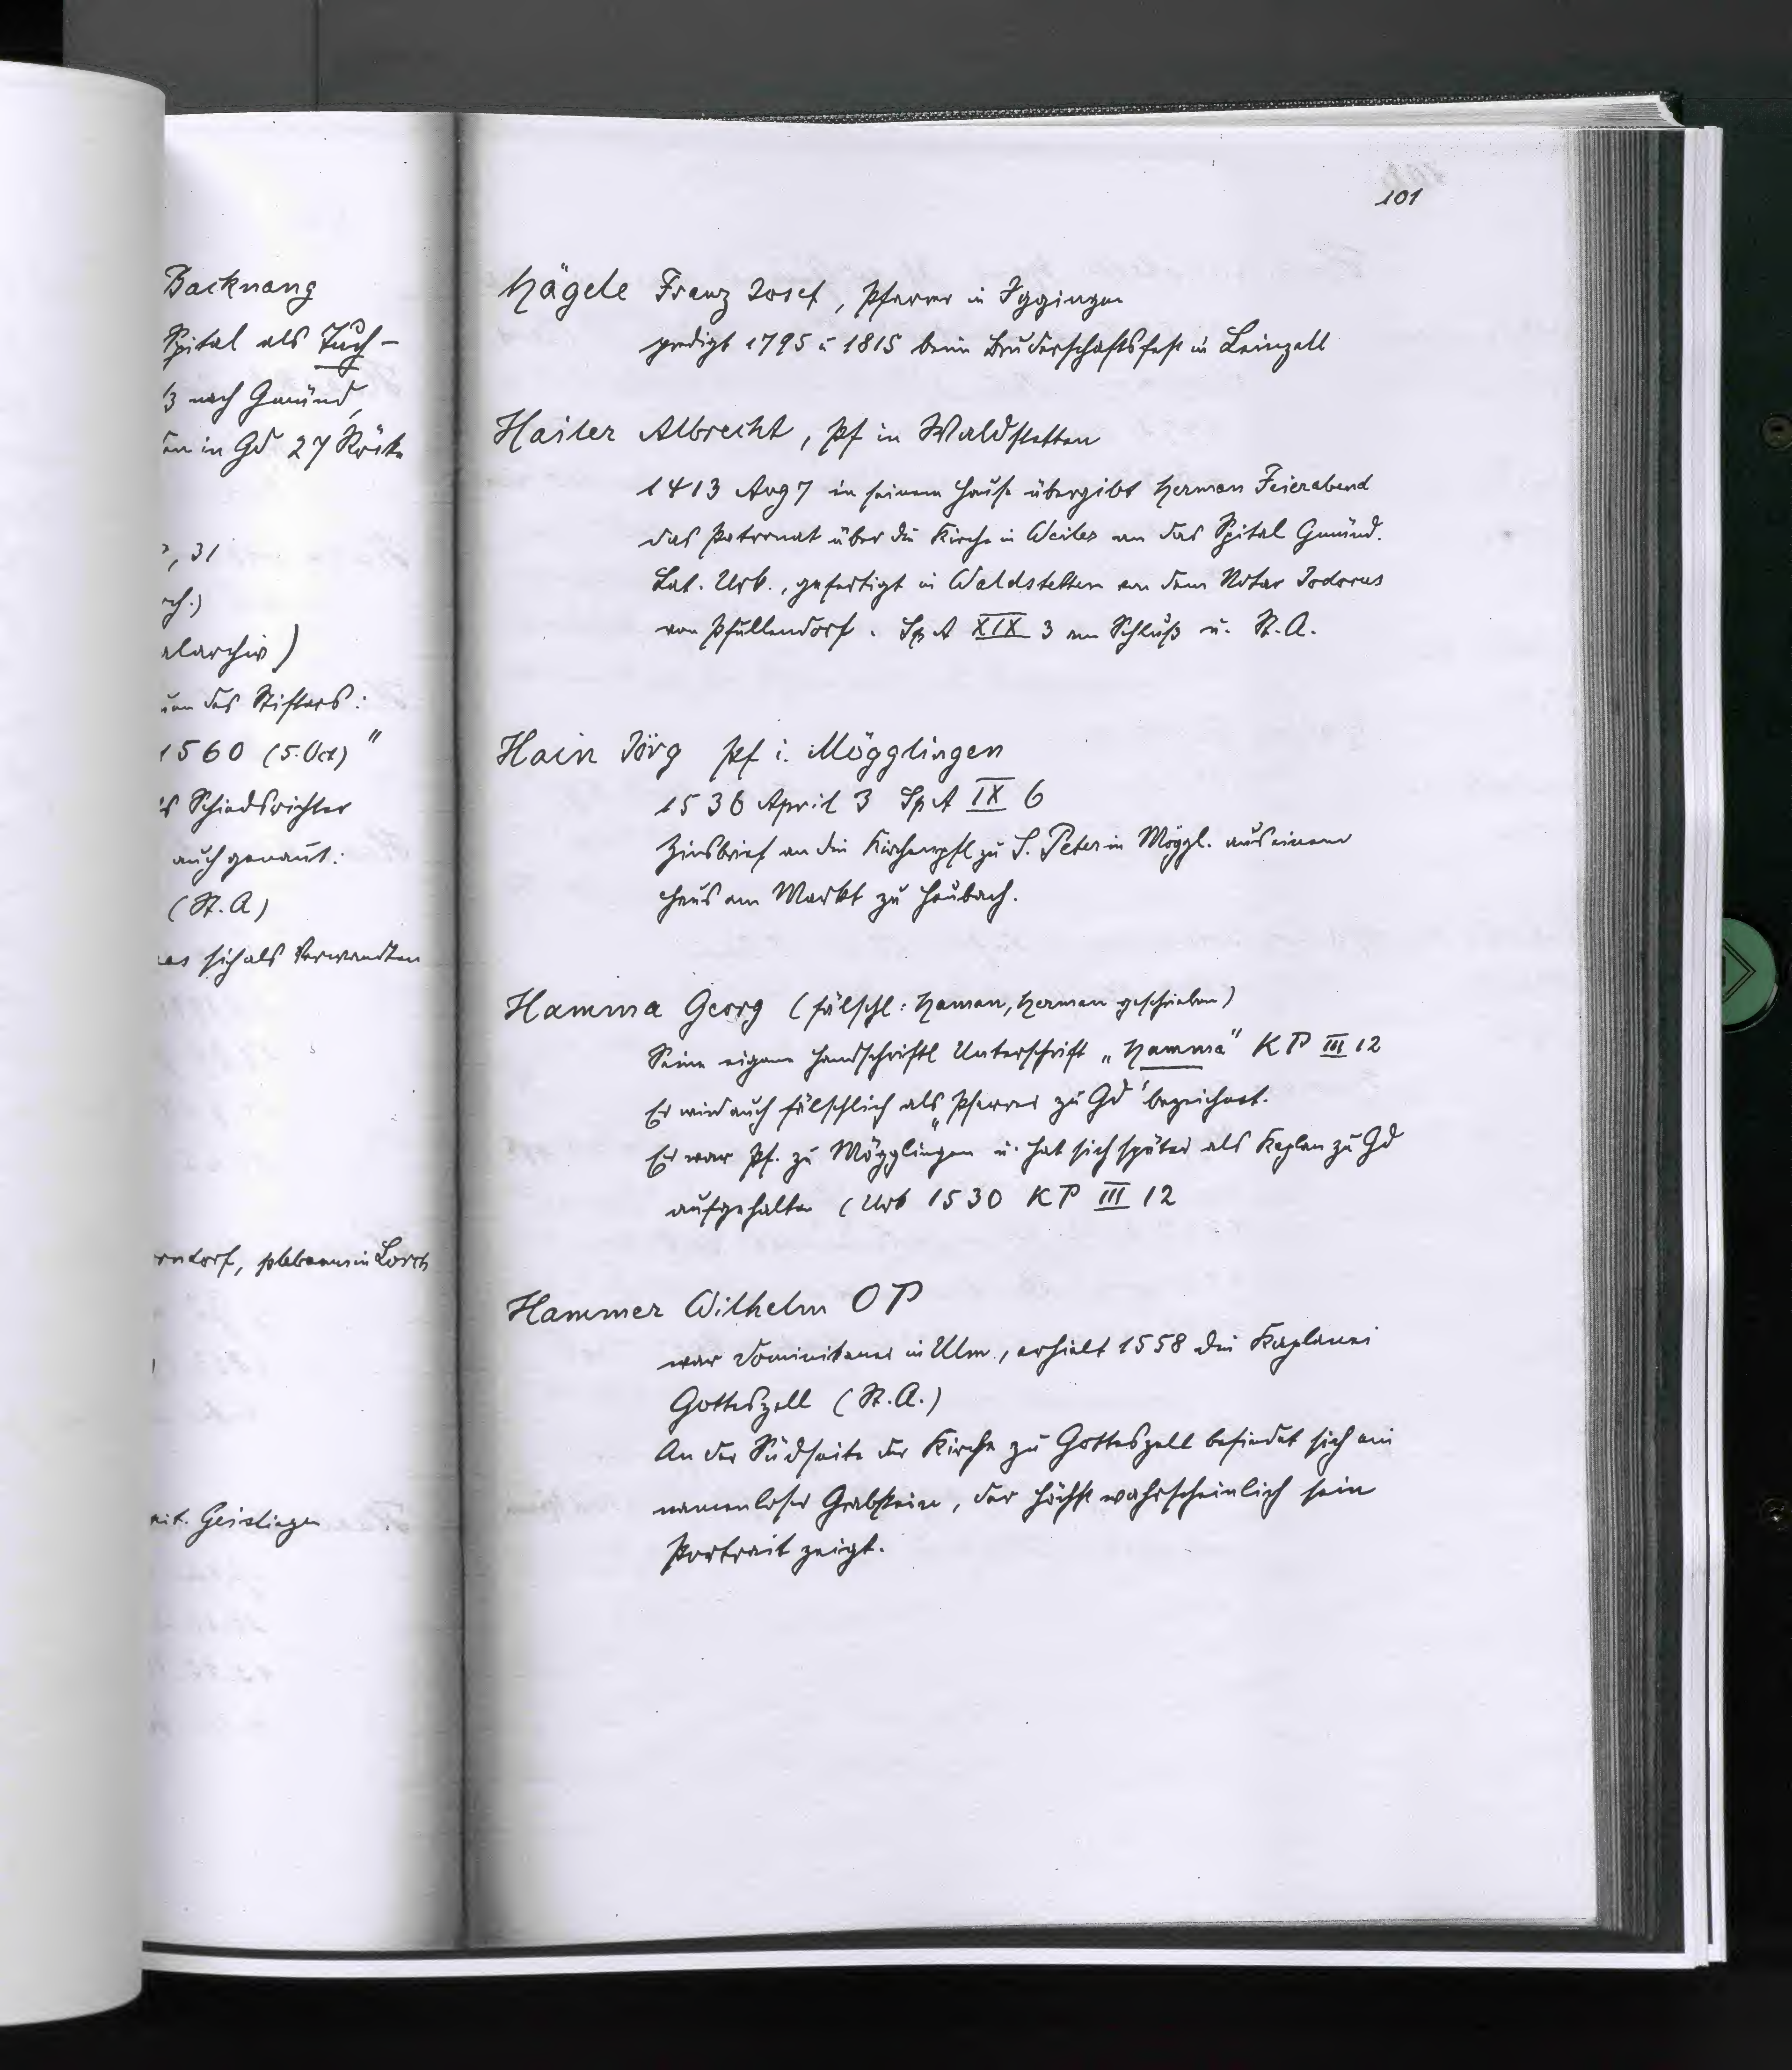 Backnang
Spital als Tuch-
3 nach Gmünd,
in Gd 27 Röcke
, 31
alarchiv)
des Stifters:
1560 (5. Oct)"
Schiedsrichter
auch genant:
(St. A)
sich als Verwandten
rndorf, plebanus in Lorch
Geislingen
101
Hägele Franz Josef, Pfarrer in Iggingen
predigt 1795 u 1815 beim Bruderschaftsfest in Leinzell
Hailer Albrecht, Pf in Waldstetten
1413 Aug 7 in seinem Hause übergibt Herman Feierabend
das Patronat über die Kirche in Weiler an das Spital Gmünd.
Lat. Urk., gefertigt in Waldstetten von dem Notar Jodocus
von Pfullendorf. Sp A XIX 3 am Schluß u. St. A.
Hain Jörg Pf i. Mögglingen
1536 April 3 Sp A IX 6
Zinsbrief an die Kirchenpfl zu S. Peter in Möggl. aus einem
Haus am Markt zu Heubach.
Hamma Georg (fälschl: Haman, Herman geschrieben)
Seine eigene handschriftl Unterschrift „Hamma" KP III 12
Er wird auch fälschlich als „Pfarrer zu Gd" bezeichnet.
Er war Pf. zu Mögglingen u. hat sich später als Kaplan zu Gd
aufgehalten (Urk 1530 KP III 12
Hammer Wilhelm OP
war Dominikaner in Ulm, erhielt 1558 die Kaplanei
Gotteszell (St. A.)
An der Südseite der Kirche zu Gotteszell befindet sich ein
namenloser Grabstein, der höchst wahrscheinlich sein
Portrait zeigt.